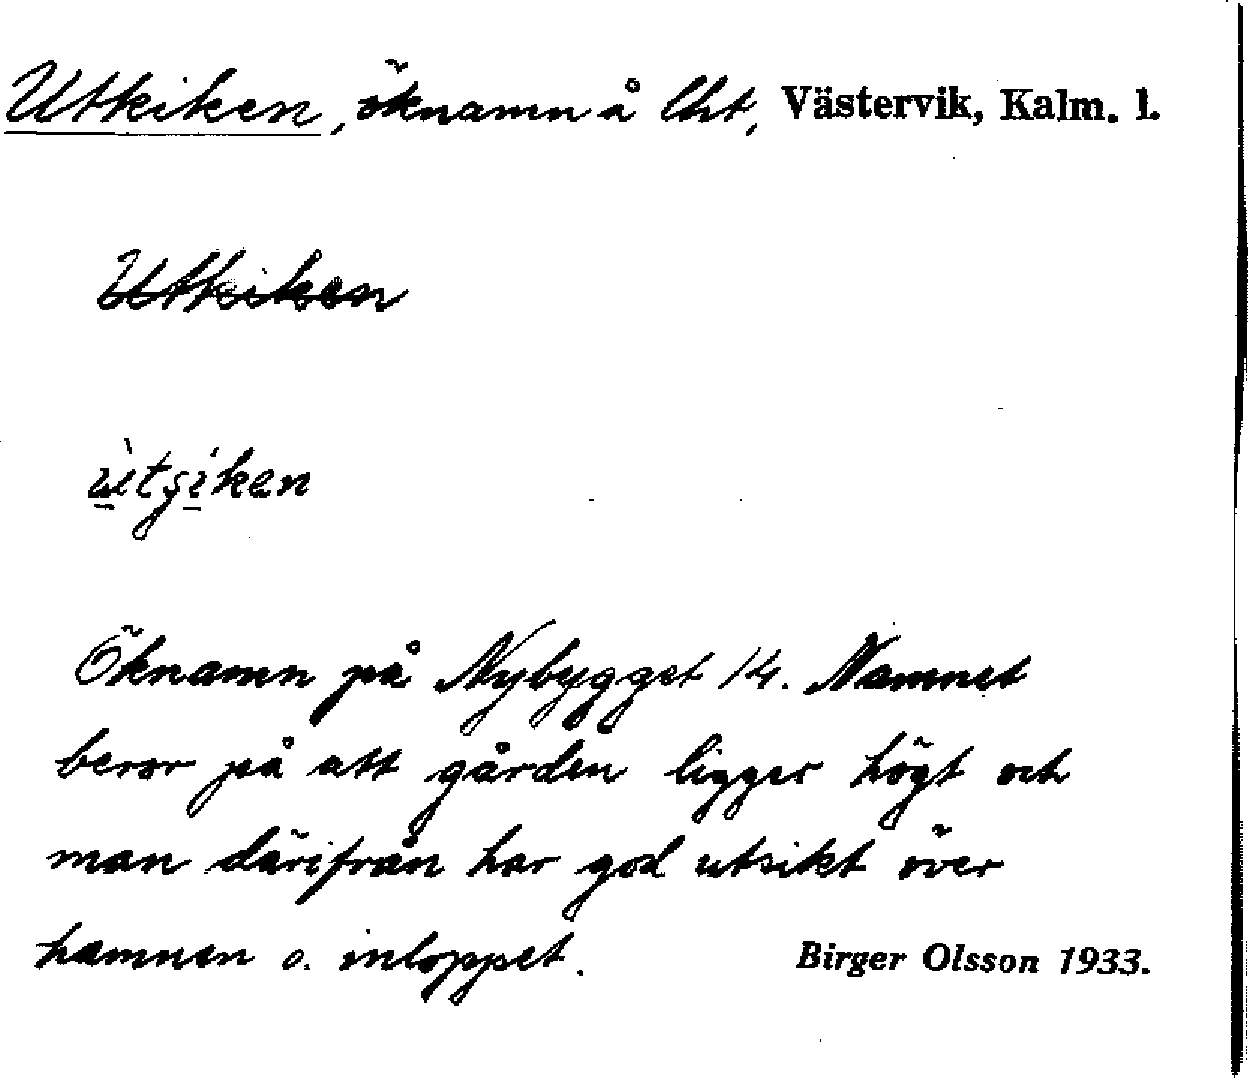 Utkiken, öknamn å lht, Västervik, Kalm. l.
Utkiken
Öknamn på Nybygget 14. Namnet
beror på att gården ligger högt och
man därifrån har god utsikt över
hamnen o. inloppet. Birger Olsson 1933.